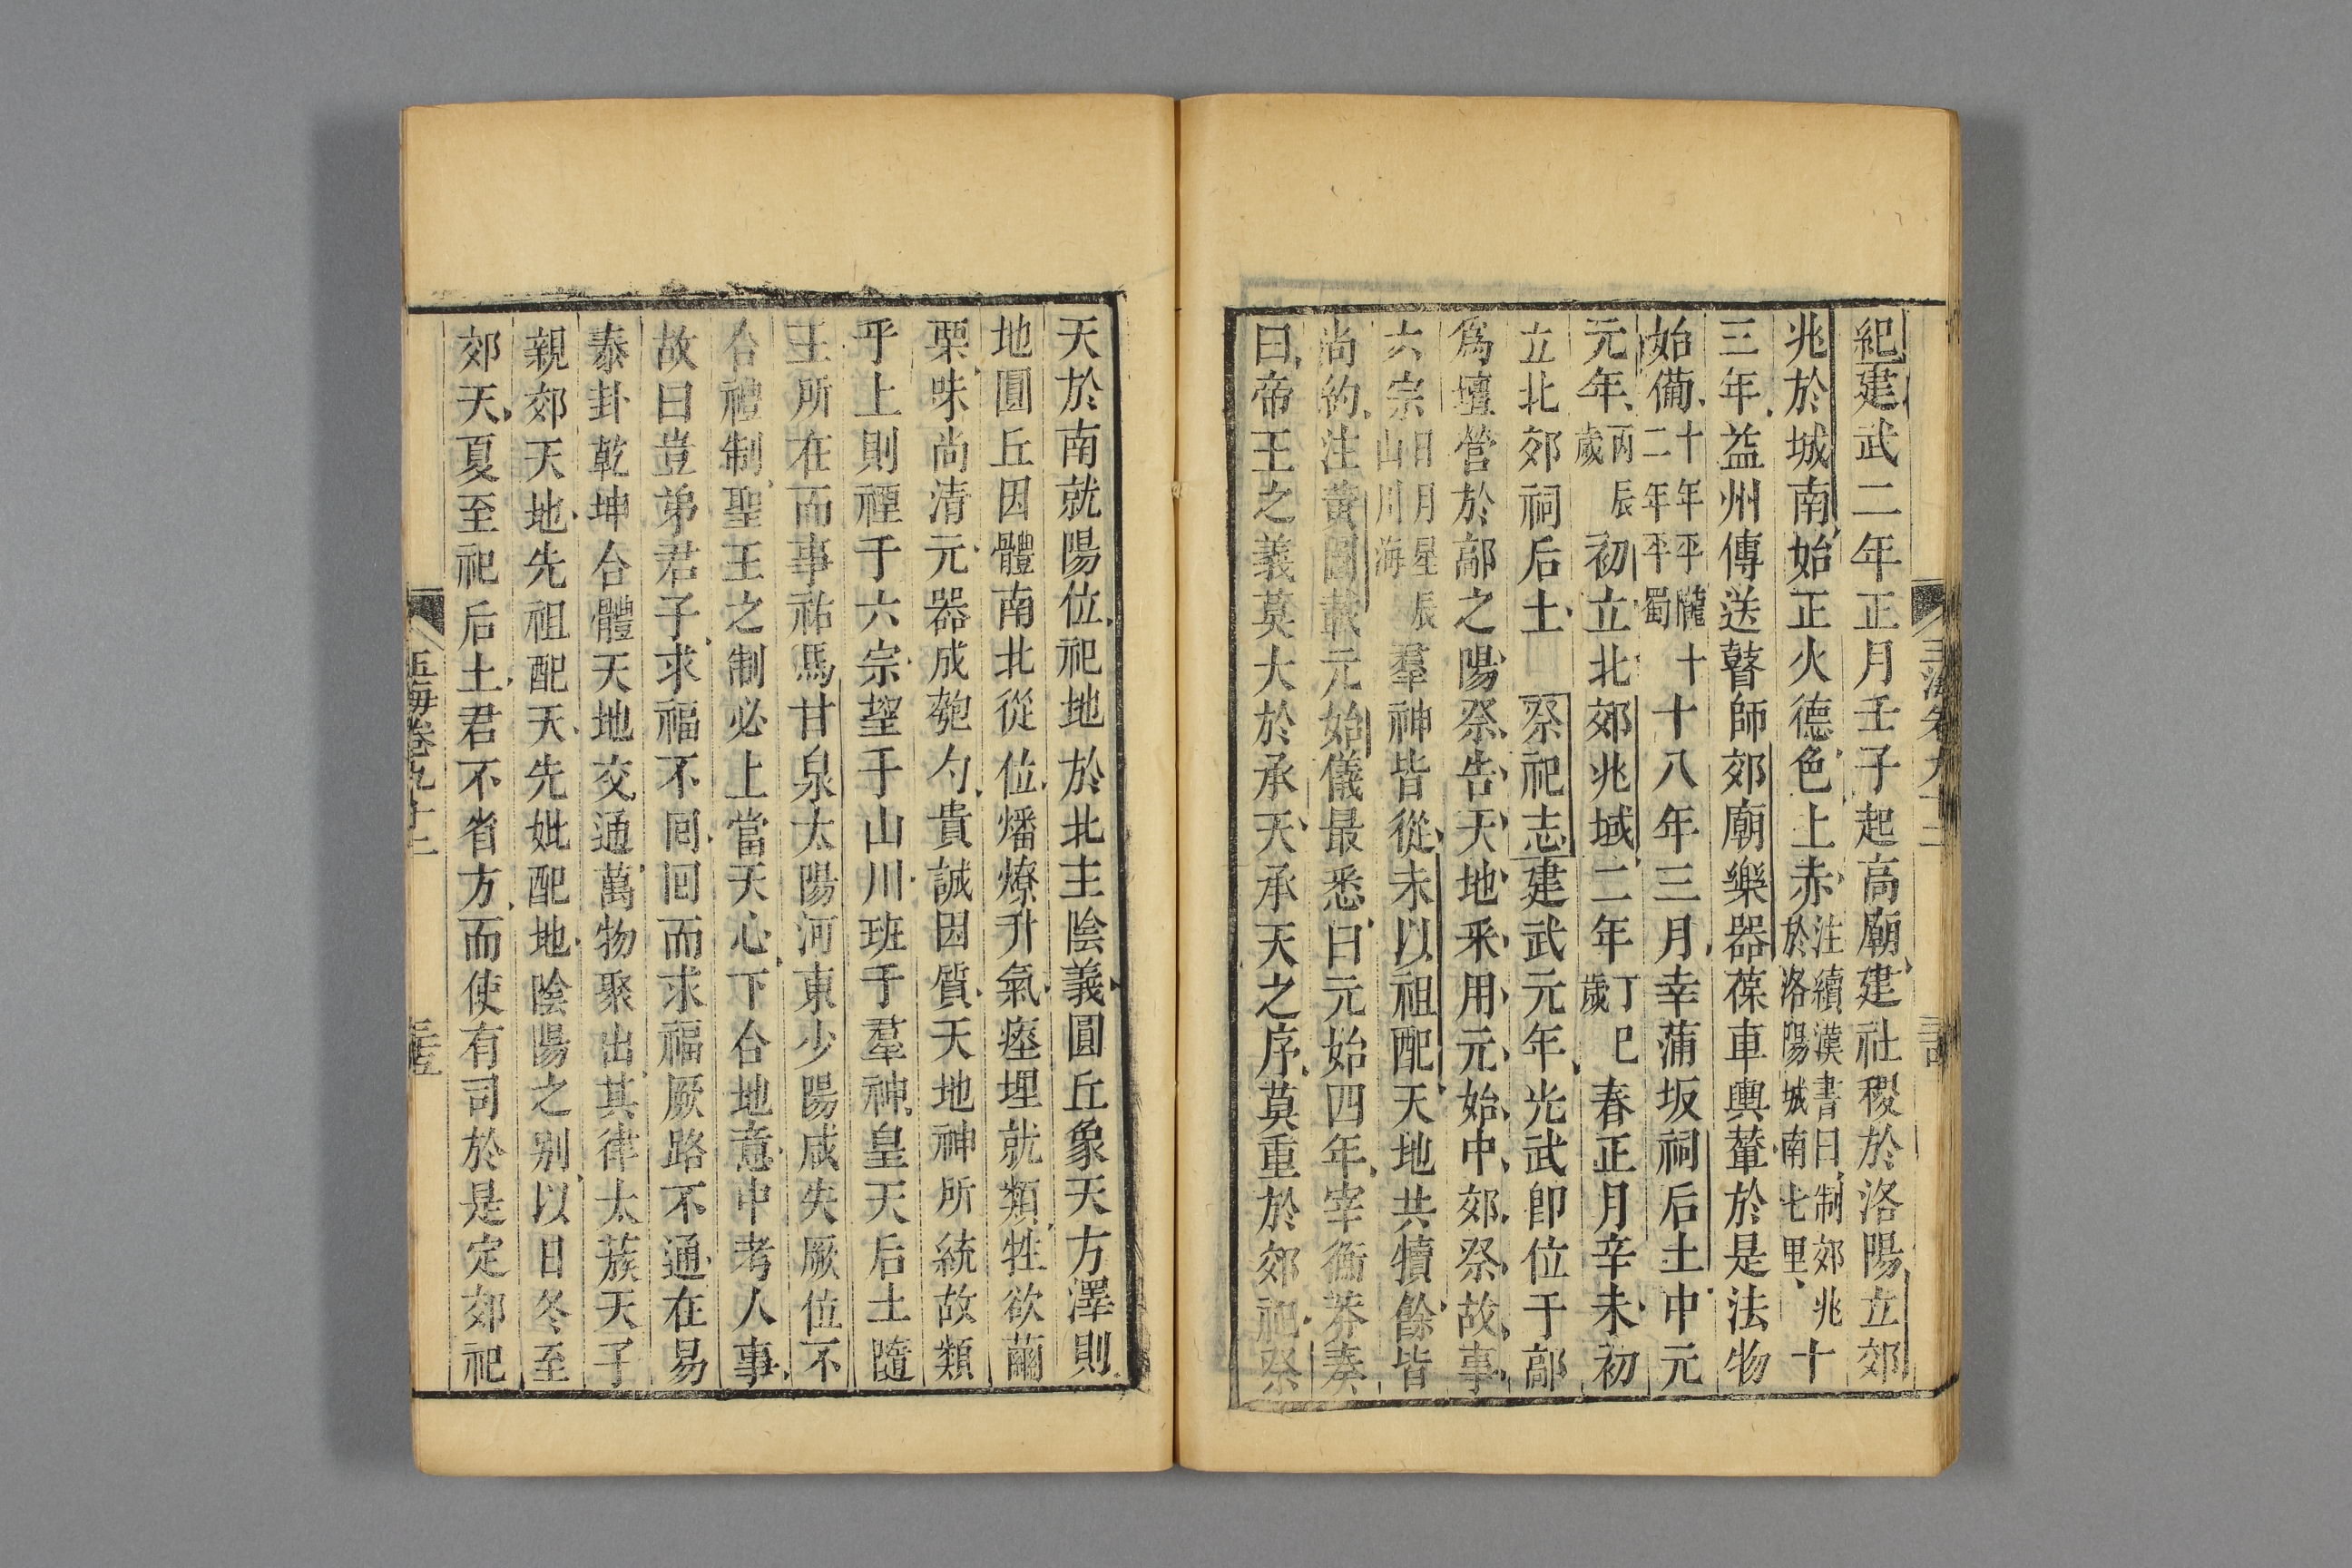 紀建武二年正月壬子起高廟建社稷於洛陽立郊
兆於城南始正火德色上赤注續漢書曰制郊兆於洛陽城南七里十
三年益州傳送瞽師郊廟樂器葆車輿輦於是法物
始備十年平隴十二年平蜀十八年三月幸蒲坂祠后土中元
元年丙辰歲初立北郊兆域二年丁巳歲春正月辛未初
立北郊祠后土祭祀志建武元年光武即位于鄗
為壇營於鄗之陽祭告天地采用元始中郊祭故事
六宗日月星辰山川海羣神皆從未以祖配天地共犢餘皆
尚約注黃圖載元始儀最悉曰元始四年宰衡莽奏
曰帝王之義莫大於承天承天之序莫重於郊祀祭
天於南就陽位祀地於北主陰義圓丘象天方澤則
地圓丘因體南北從位燔燎升氣瘞埋就類牲欲繭
栗味尚清元器成匏勺貴誠因質天地神所統故類
乎上則禋于六宗望于山川班于羣神皇天后土隨
王所在而事祐焉甘泉太陽河東少陽咸失厥位不
合禮制聖王之制必上當天心下合地意中考人事
故曰豈弟君子求福不回回而求福厥路不通在易
泰卦乾坤合體天地交通萬物聚出其律太蔟天子
親郊天地先祖配天先妣配地陰陽之别以日冬至
郊天夏至祀后土君不省方而使有司於是定郊祀
玉海卷九十二
三五